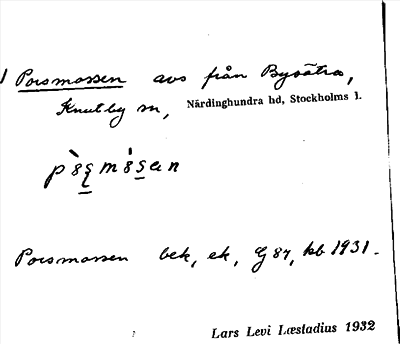 Porsmossen avs från Bysätra,
Knutby sn, Närdinghundra hd, Stockholms l.
Porsmossen bek, ek, G 87, kb 1931.
Lars Levi Læstadius 1932